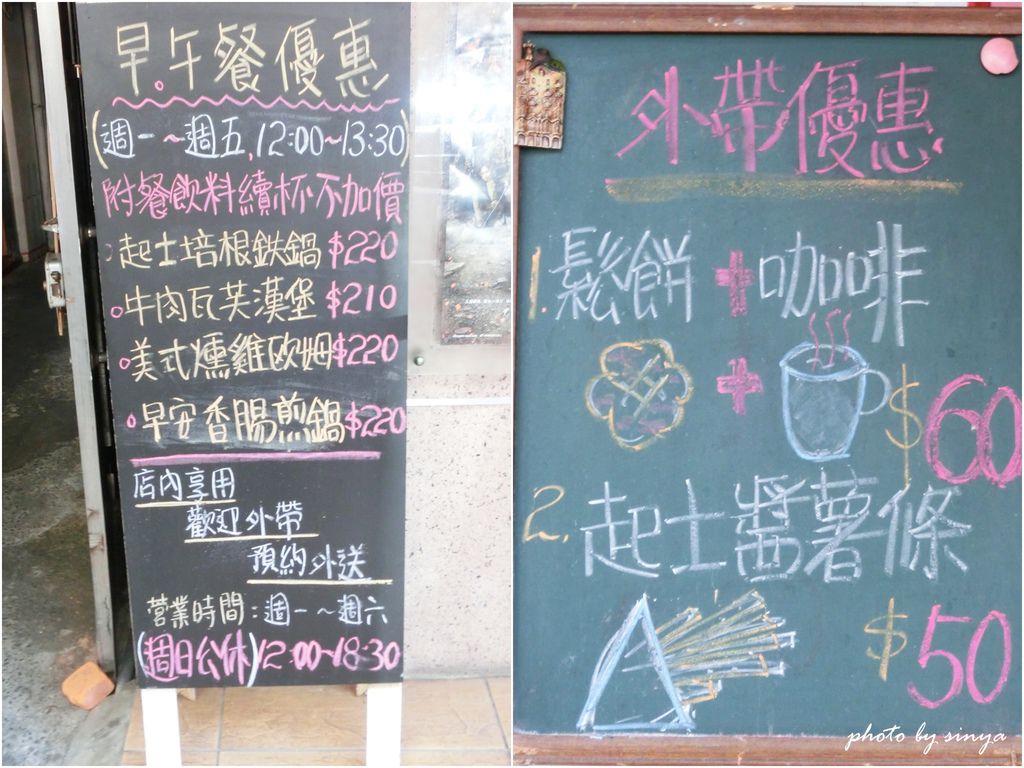 早.午餐優惠
(週一~週五,12:00~13:30)
附餐飲料續杯不加價
起士培根鉄鍋$220
牛肉瓦芙漢堡$210
美式燻雞歐姆$220
早安香腸煎鍋$220
店內享用
歡迎外帶
預約外送
營業時間:週一~週六
(週日公休)12:00~18:30
外帶優惠
1.鬆餅+咖啡
+
$60
2.起士醬薯條
$50
photo by sinya